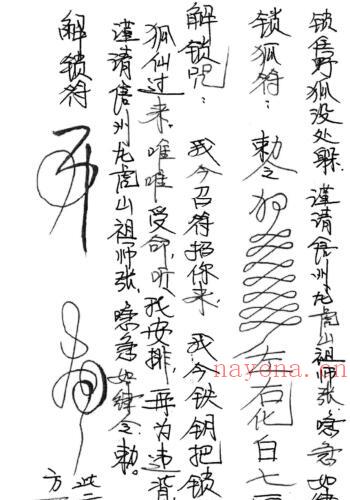 锁住野狐没处躲。谨请信州龙虎山祖师张。嗓急如
锁狐符：敕令 左右化白七
解锁咒：我今召符招你来。我今铁钥把锁
狐仙过来。唯唯受命，听我安排，再为违背
谨请信州龙虎山祖师张嗓急如律令敕。
解锁符
此
方
nayona.cn